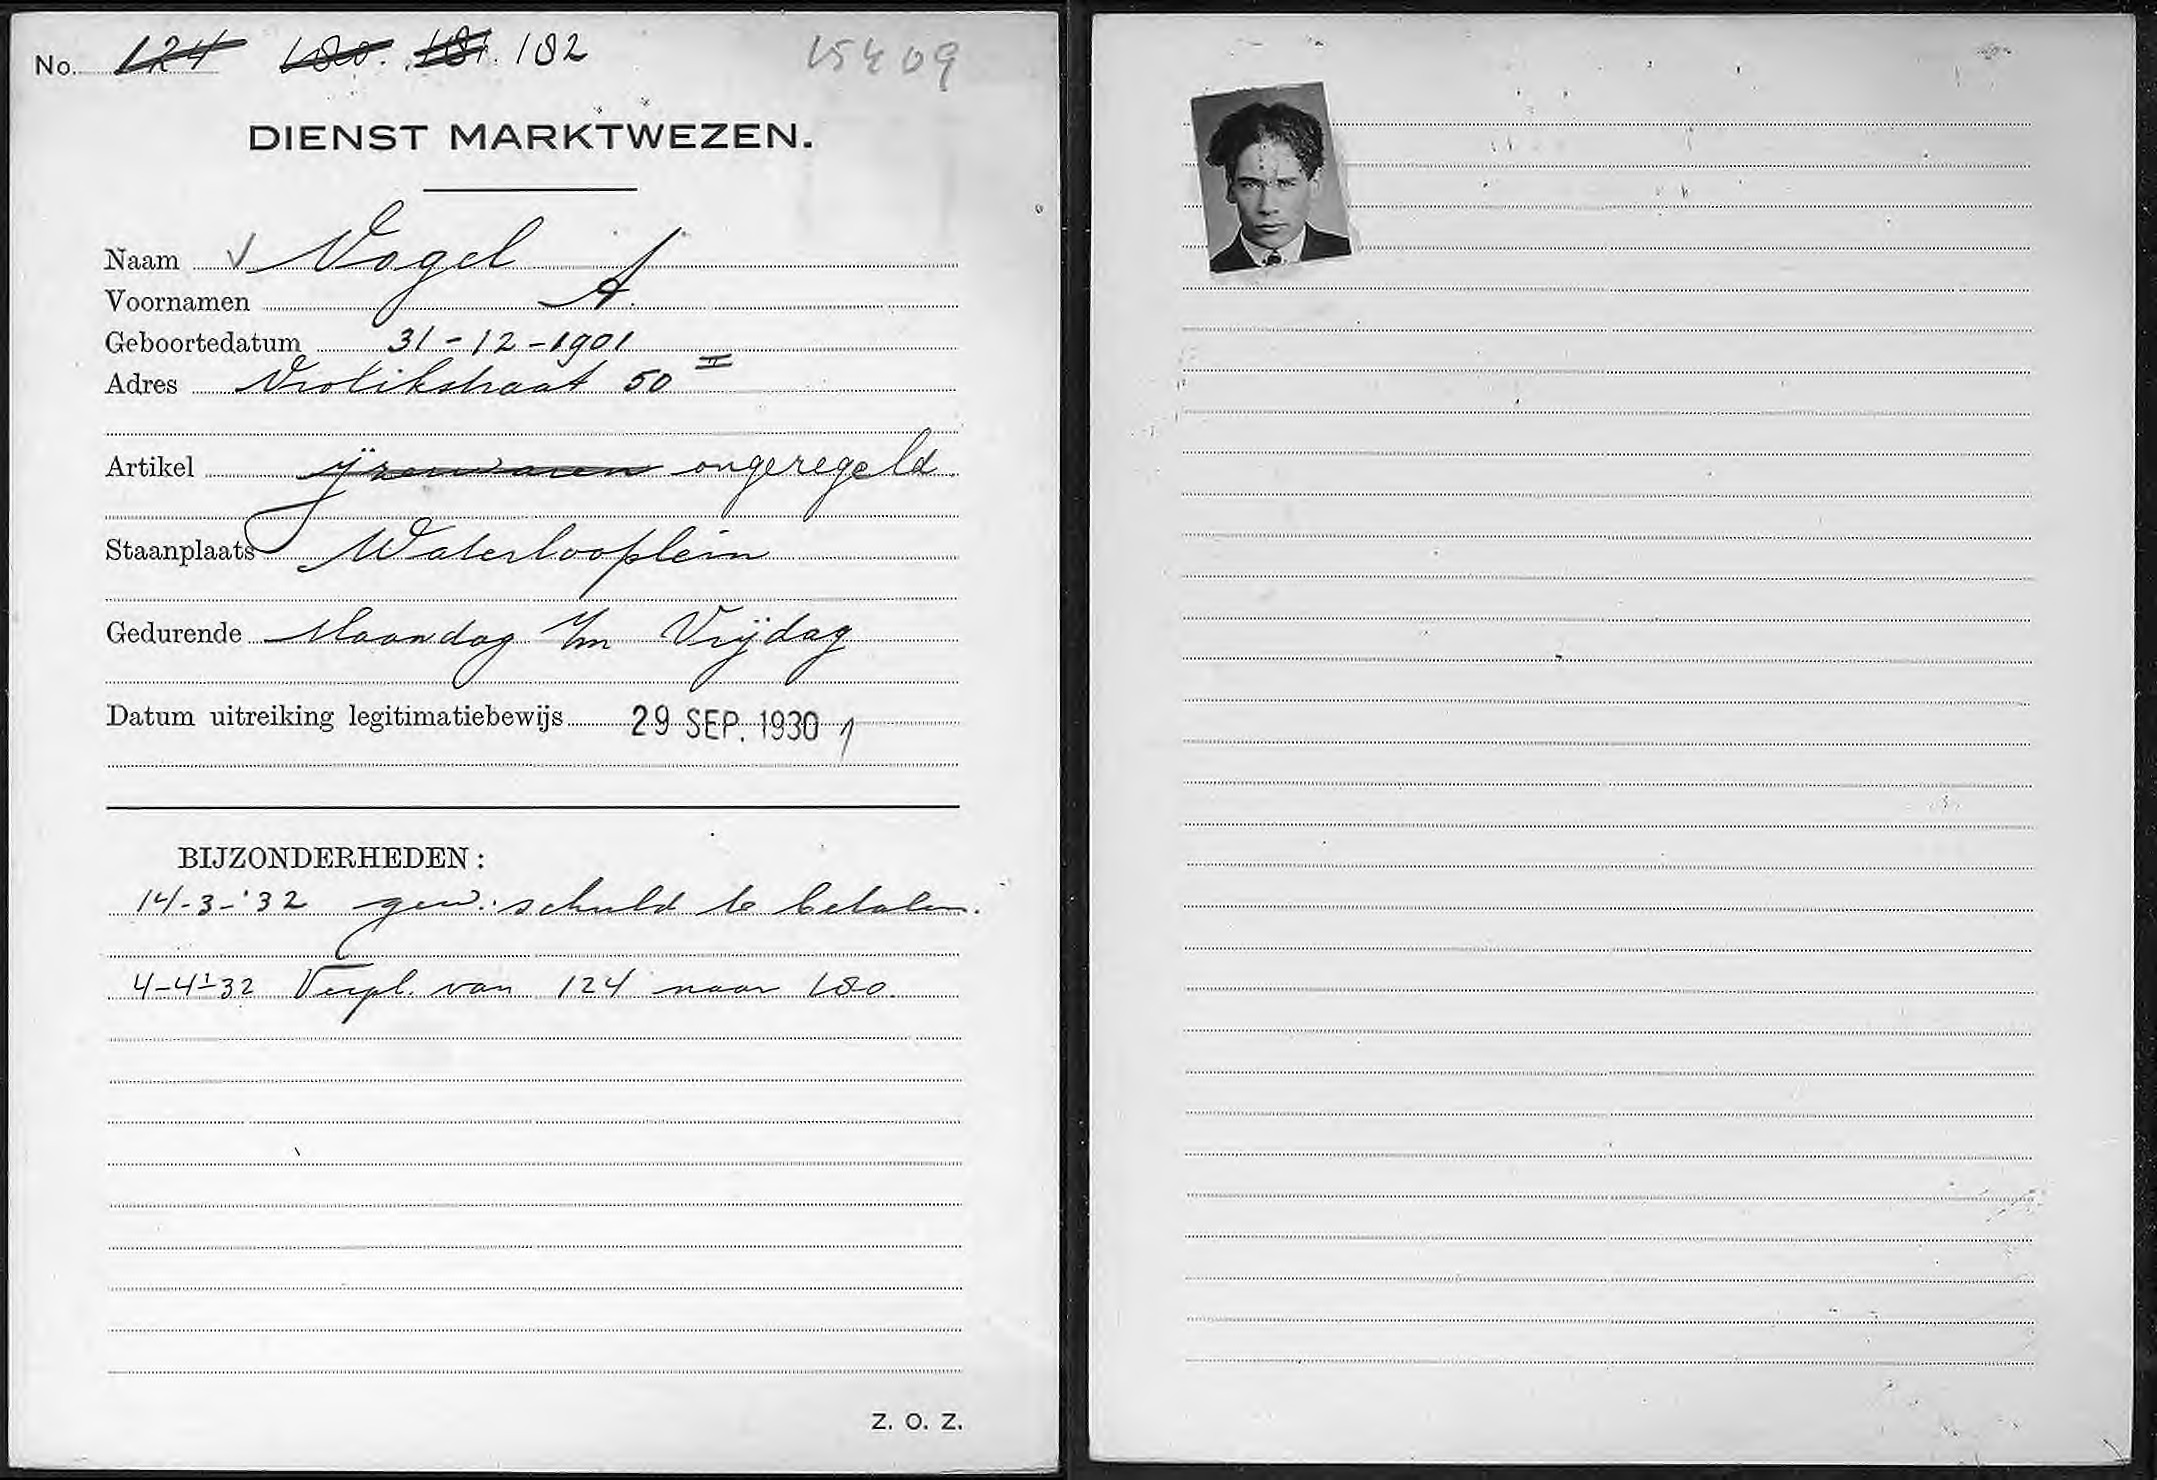 No. 124 180. 181. 182 15409
DIENST MARKTWEZEN.
Naam Vogel
Voornamen A.
Geboortedatum 31-12-1901
Adres Vrolikstraat 50 II
Artikel ijzerwaren ongeregeld
Staanplaats Waterlooplein
Gedurende Maandag t/m Vrijdag
Datum uitreiking legitimatiebewijs 29 SEP. 1930
BIJZONDERHEDEN:
14-3-'32 gew. schuld te betalen.
4-4-'32 Verpl. van 124 naar 180.
Z. O. Z.